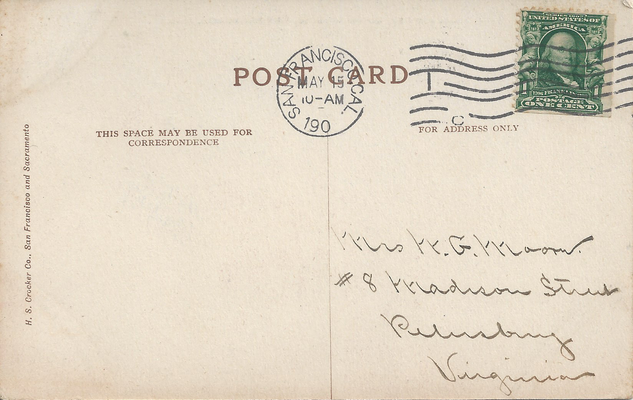 SERIES 1902
UNITED STATES OF
AMERICA
FRANKLIN
POSTAGE
ONE CENT
POST CARD
SAN FRANCISCO, CAL.
MAY 15
10-AM
190
C
THIS SPACE MAY BE USED FOR
CORRESPONDENCE
FOR ADDRESS ONLY
H. S. Crocker Co., San Francisco and Sacramento
Mrs W. G. Moore.
# 8 Madison Street
Petersburg
Virginia